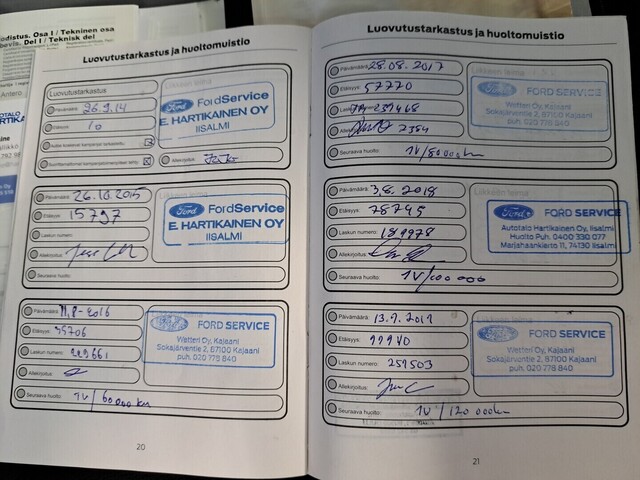 odistus. Osa I / Tekninen osa
bevis. Del I / Teknisk del
Antero
Luovutustarkastus ja huoltomuistio
Luovutustarkastus
Päivämäärä: 26.9.14
10
Allekirjoitus:
Liikkeen leima
Ford FordService
E. HARTIKAINEN OY
IISALMI
Päivämäärä: 26.10.2015
Etäisyys: 15797
Laskun numero:
Allekirjoitus:
Seuraava huolto:
Ford FordService
E. HARTIKAINEN OY
IISALMI
Päivämäärä: 11.8-2016
Etäisyys: 35706
Laskun numero: 229661
Allekirjoitus:
Seuraava huolto: 1V/60000 km
Ford FORD SERVICE
Wetteri Oy, Kajaani
Sokajärventie 2, 87100 Kajaani
puh. 020 778 840
20
Luovutustarkastus ja huoltomuistio
Päivämäärä: 28.08.2017
Etäisyys: 57770
Laskun numero: 239468
Allekirjoitus: 2354
Seuraava huolto: 1V/80000km
Liikkeen leima
Ford FORD SERVICE
Wetteri Oy, Kajaani
Sokajärventie 2, 87100 Kajaani
puh. 020 778 840
Päivämäärä: 3.8.2018
Etäisyys: 78745
Laskun numero: 189978
Allekirjoitus:
Seuraava huolto: 1V/100 000
Liikkeen leima
Ford FORD SERVICE
Autotalo Hartikainen Oy, Iisalmi
Huolto Puh. 0400 330 077
Marjahaankierto 11, 74130 Iisalmi
Päivämäärä: 13.9.2019
Etäisyys: 99940
Laskun numero: 259503
Allekirjoitus:
Seuraava huolto: 1V/120 000km
Ford FORD SERVICE
Wetteri Oy, Kajaani
Sokajärventie 2, 87100 Kajaani
puh. 020 778 840
21